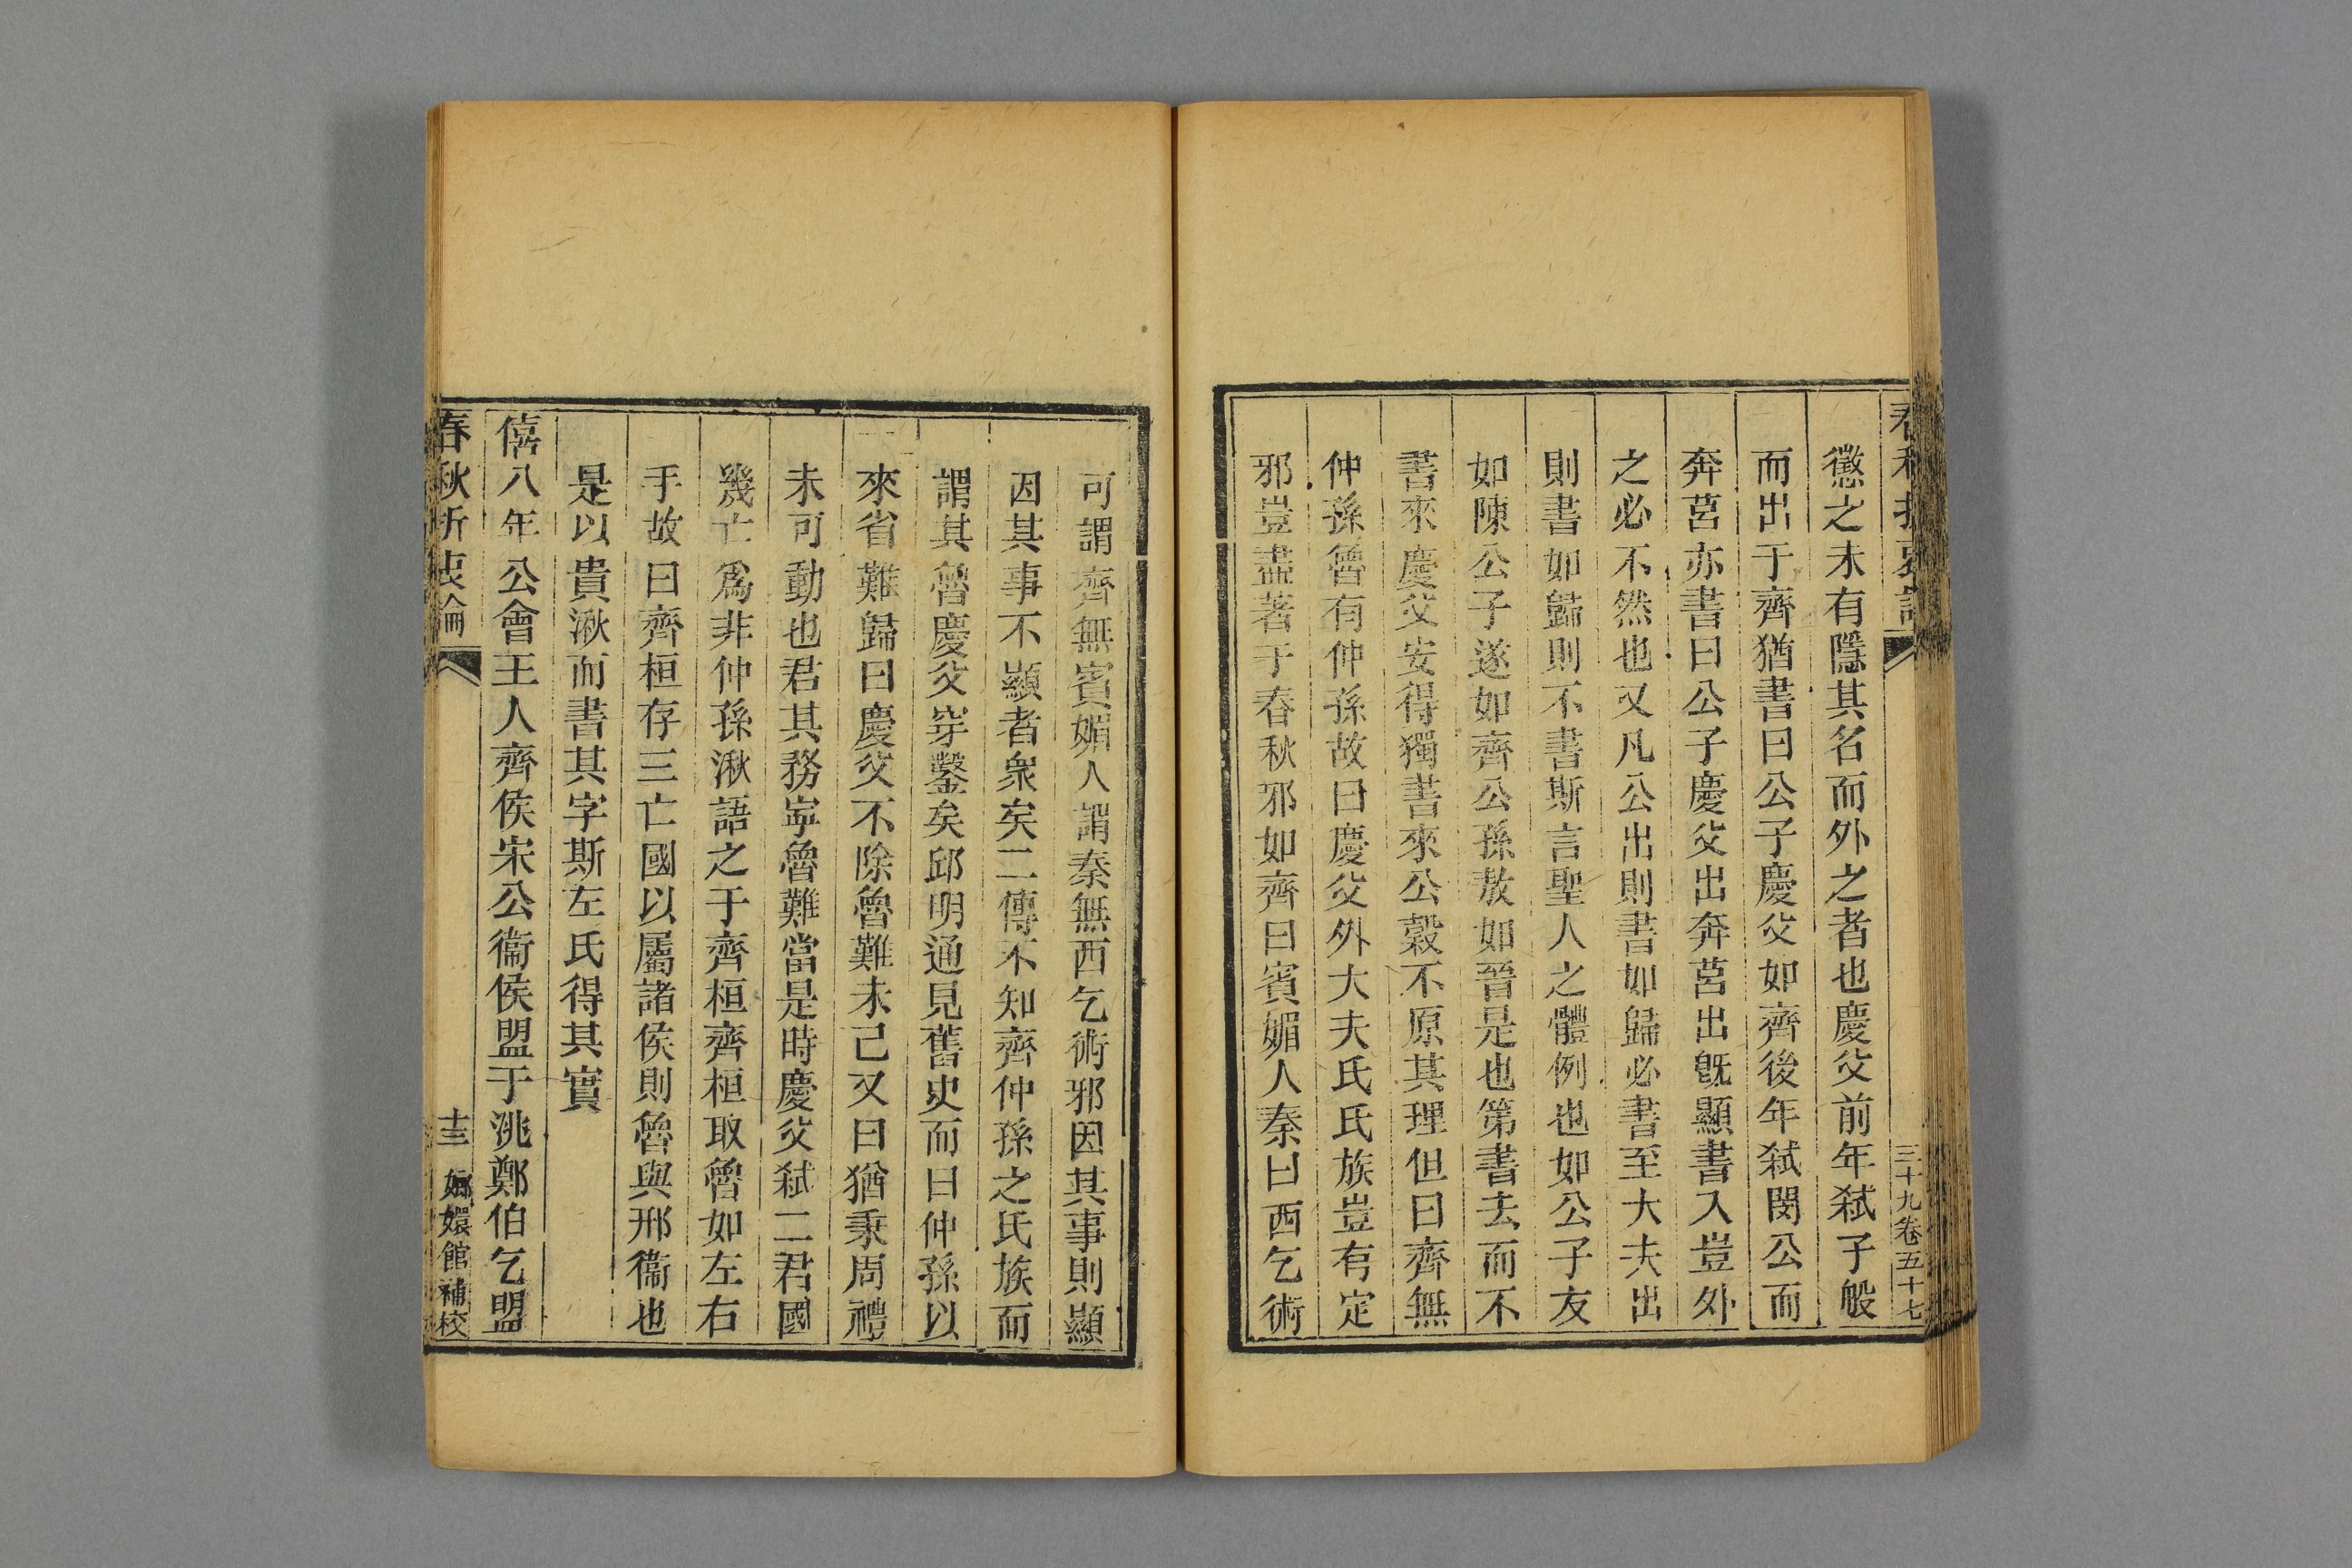 三十九卷五十七
懲之未有隱其名而外之者也慶父前年弑子般
而出于齊猶書曰公子慶父如齊後年弑閔公而
奔莒亦書曰公子慶父出奔莒出旣顯書入豈外
之必不然也又凡公出則書如歸必書至大夫出
則書如歸則不書斯言聖人之體例也如公子友
如陳公子遂如齊公孫敖如晉是也第書去而不
書來慶父安得獨書來公穀不原其理但曰齊無
仲孫魯有仲孫故曰慶父外大夫氏氏族豈有定
邪豈盡著于春秋邪如齊曰賓媚人秦曰西乞術
可謂齊無賓媚人謂秦無西乞術邪因其事則顯
因其事不顯者衆矣二傳不知齊仲孫之氏族而
謂其魯慶父穿鑿矣邱明通見舊史而曰仲孫以
來省難歸曰慶父不除魯難未己又曰猶秉周禮
未可動也君其務寧魯難當是時慶父弑二君國
幾亡爲非仲孫湫語之于齊桓齊桓取魯如左右
手故曰齊桓存三亡國以屬諸侯則魯與邢衞也
是以貴湫而書其字斯左氏得其實
僖八年公會王人齊侯宋公衞侯盟于洮鄭伯乞盟
春秋折衷論 十三 嫏嬛館補校